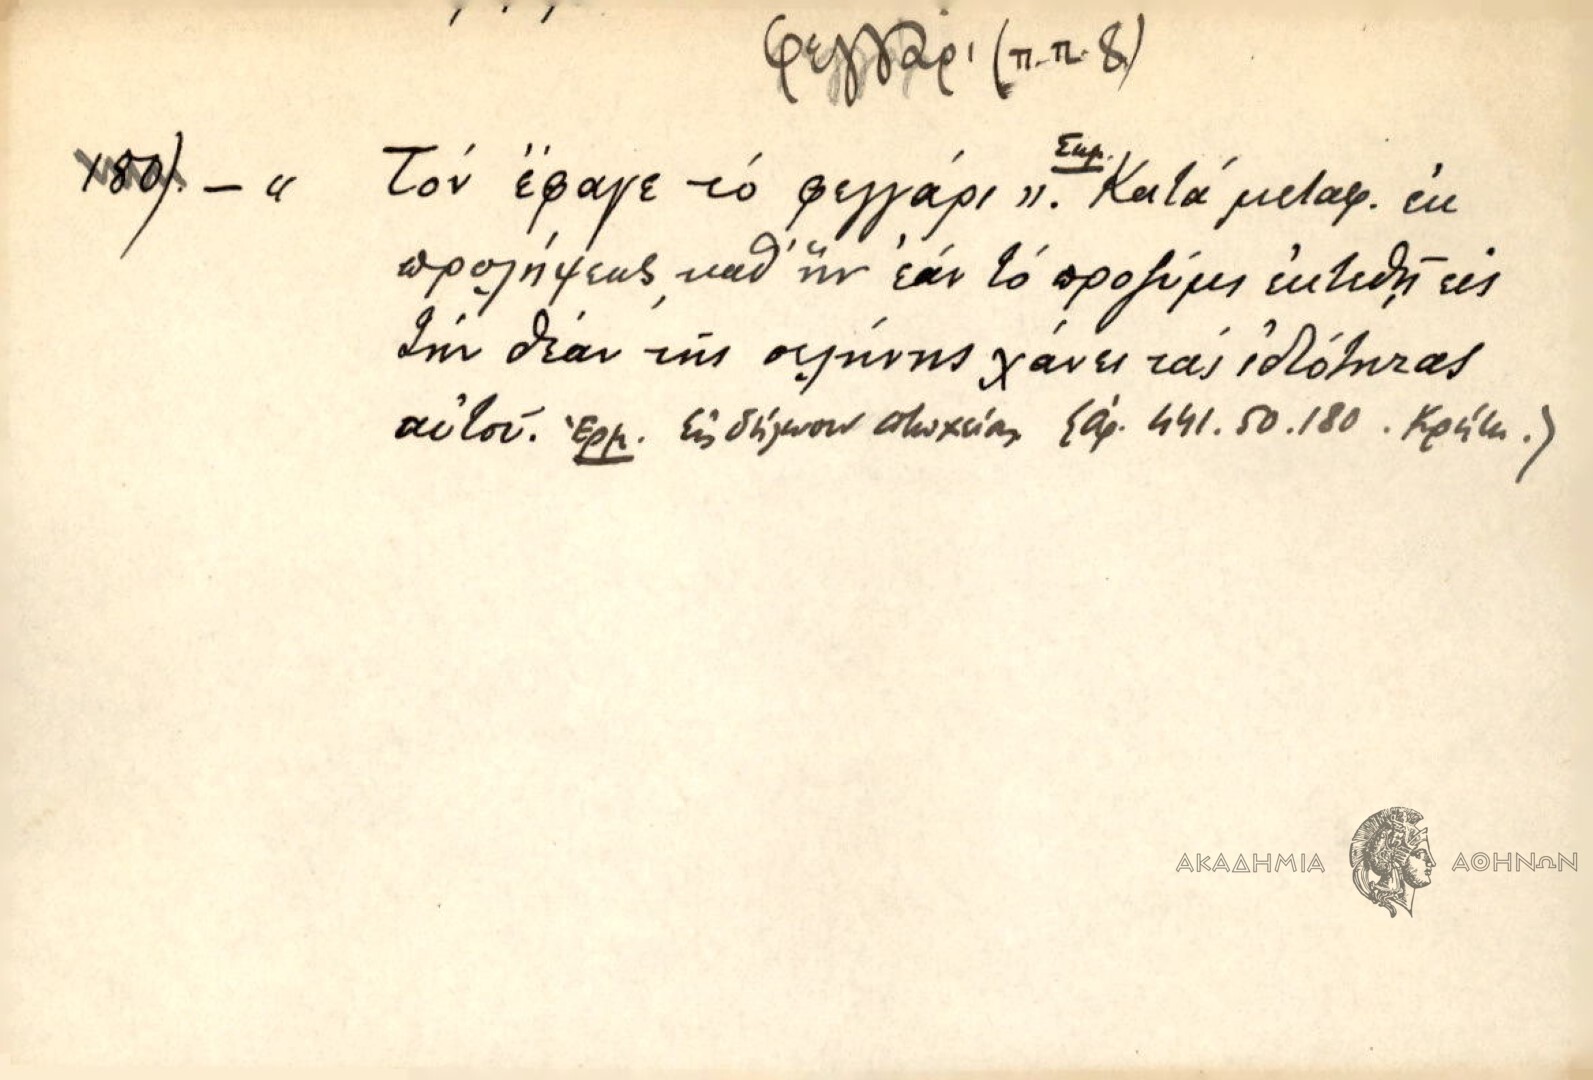 φεγγάρι (π.π. 8)
180). – « Τόν ἔφαγε τό φεγγάρι ». Σημ. Κατά μεταφ. ἐκ
προλήψεως, καθ' ἥν ἐάν τό προζύμι ἐκτεθῇ εἰς
τήν θέαν τῆς σελήνης χάνει τάς ἰδιότητας
αὐτοῦ. Ἑρμ. Εἰς δήλωσιν (ἀρ. 441.50.180. Κρήτη.)
ΑΚΑΔΗΜΙΑ ΑΘΗΝΩΝ